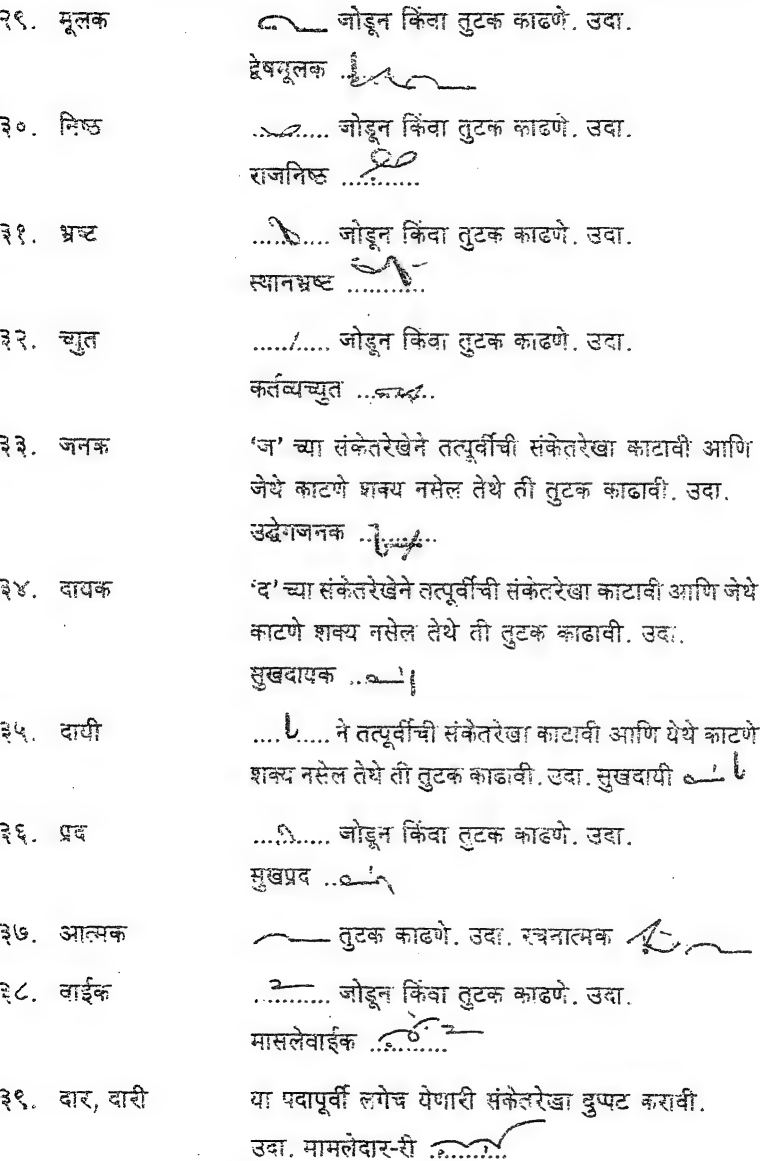 २९. मूलक जोडून किंवा तुटक काढणे. उदा.
द्वेषमूलक ...
३०. निष्ठ ......... जोडून किंवा तुटक काढणे. उदा.
राजनिष्ठ ...........
३१. भ्रष्ट ......... जोडून किंवा तुटक काढणे. उदा.
स्थानभ्रष्ट ...........
३२. च्युत ......... जोडून किंवा तुटक काढणे. उदा.
कर्तव्यच्युत .....
३३. जनक 'ज' च्या संकेतरेखेने तत्पूर्वीची संकेतरेखा काटावी आणि
जेथे काटणे शक्य नसेल तेथे ती तुटक काढावी. उदा.
उद्वेगजनक .....
३४. दायक 'द' च्या संकेतरेखेने तत्पूर्वीची संकेतरेखा काटावी आणि जेथे
काटणे शक्य नसेल तेथे ती तुटक काढावी. उदा.
सुखदायक ...
३५. दायी ......... ने तत्पूर्वीची संकेतरेखा काटावी आणि येथे काटणे
शक्य नसेल तेथे ती तुटक काढावी. उदा. सुखदायी
३६. प्रद ......... जोडून किंवा तुटक काढणे. उदा.
सुखप्रद ..
३७. आत्मक तुटक काढणे. उदा. रचनात्मक
३८. वाईक ........... जोडून किंवा तुटक काढणे. उदा.
मासलेवाईक ...........
३९. दार, दारी या पदापूर्वी लगेच येणारी संकेतरेखा दुप्पट करावी.
उदा. मामलेदार-री ...........